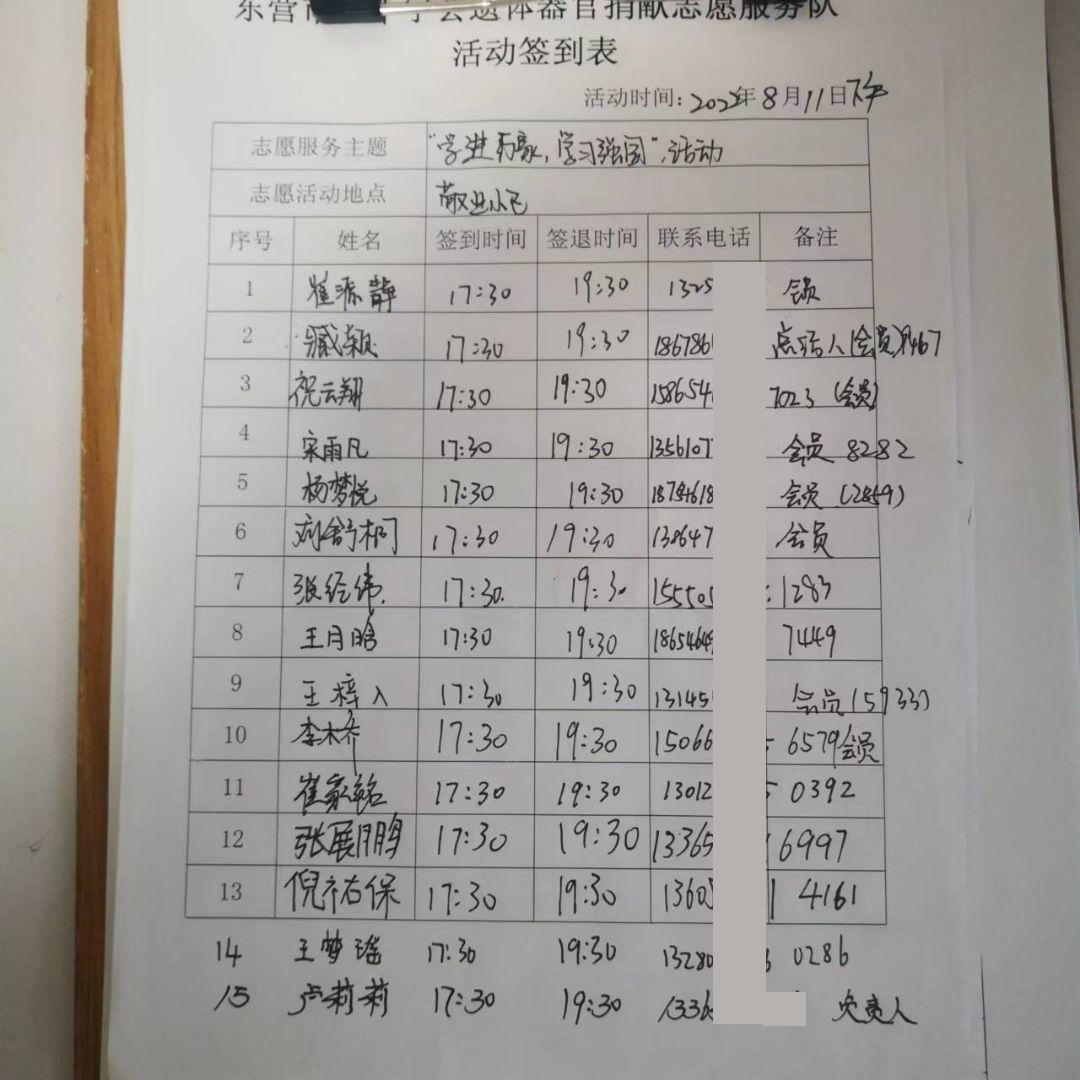 东营市 学会遗体器官捐献志愿服务队
活动签到表
活动时间:202 年8月11日下午
志愿服务主题 “学进万家,学习强国”,活动
志愿活动地点 敬业小区
序号 姓名 签到时间 签退时间 联系电话 备注
1 崔源静 17:30 19:30 1325 会员
2 臧颖 17:30 19:30 186786 总结人(会员)9467
3 祝云翔 17:30 19:30 158654 7023 (会员)
4 宋雨凡 17:30 19:30 1356107 会员 8282
5 杨梦悦 17:30 19:30 18784618 会员 (2859)
6 刘舒桐 17:30 19:30 138647 会员
7 张经纬. 17:30. 19:30 15550 1283
8 王月晗 17:30 19:30 18654649 7449
9 王梓入 17:30 19:30 13145 会员(5933)
10 李木乔 17:30 19:30 15066 6579会员
11 崔家铭 17:30 19:30 13012 0392
12 张展鹏 17:30 19:30 13365 6997
13 倪祐保 17:30 19:30 1360 4161
14 王梦瑶 17:30 19:30 13280 0286
15 卢莉莉 17:30 19:30 1336 负责人